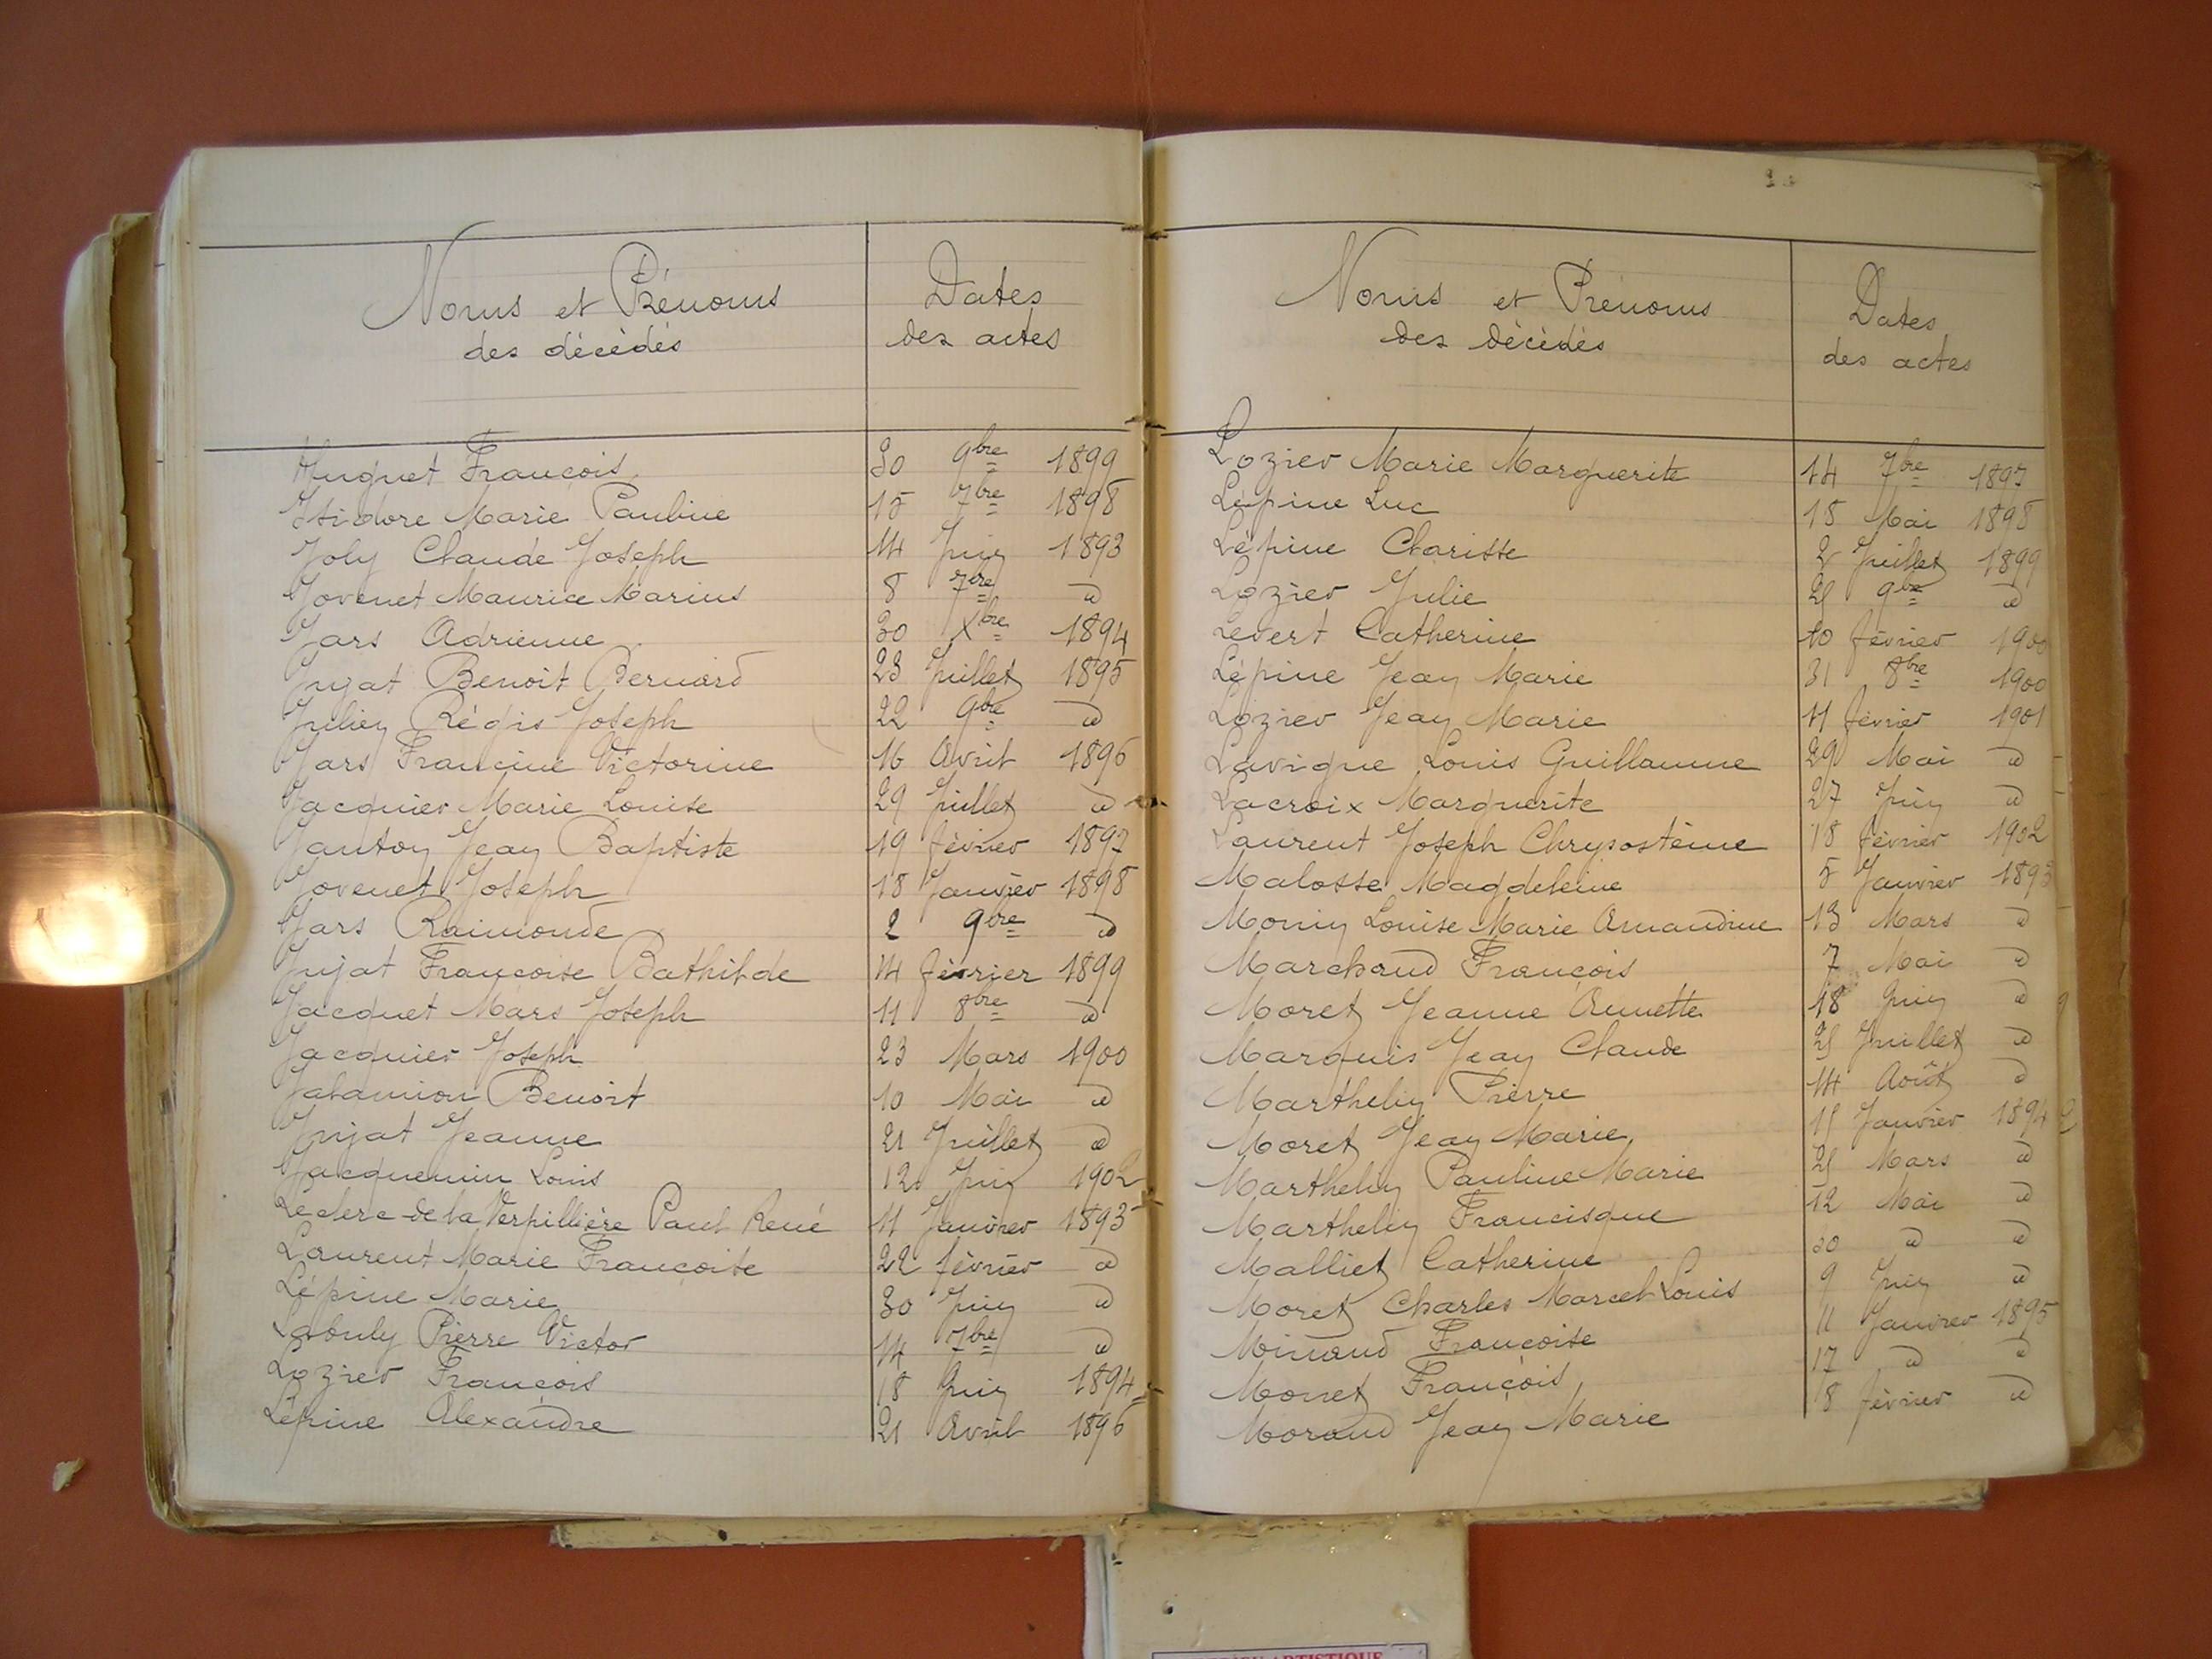 Noms et Prénoms
des décédés
Dates
des actes
Huguet François 30 9bre 1899
Isidore Marie Pauline 15 7bre 1898
Joly Claude Joseph 14 Juin 1893
Jovenet Maurice Marius 8 7bre d
Jars Adrienne 30 Xbre 1894
Jujat Benoit Bernard 23 Juillet 1895
Julien Régis Joseph 22 9bre d
Jars Francine Victorine 16 Avril 1896
Jacquier Marie Louise 29 Juillet d
Janton Jean Baptiste 19 février 1897
Jovenet Joseph 18 Janvier 1898
Jars Raimonde 2 9bre d
Jujat Françoise Bathilde 14 février 1899
Jacquet Mars Joseph 11 8bre d
Jacquier Joseph 23 Mars 1900
Jalamion Benoit 10 Mai d
Jujat Jeanne 21 Juillet d
Jacquemin Louis 12 Juin 1902
Leclerc-de la Verpillière Paul René 11 Janvier 1893
Laurent Marie Françoise 22 février d
Lépine Marie 30 Juin d
Labuly Pierre Victor 14 7bre d
Lozier François 18 Juin 1894
Lépine Alexandre 21 Avril 1896
Noms et Prénoms
des décédés
Dates
des actes
Lozier Marie Marguerite 14 7bre 1897
Lépine Luc 18 Mai 1898
Lépine Clarisse 2 Juillet 1899
Lozier Julie 25 9bre d
Levert Catherine 10 février 1900
Lépine Jean Marie 31 8bre 1900
Lozier Jean Marie 11 février 1901
Lavigne Louis Guillaume 29 Mai d
Lacroix Marguerite 27 Juin d
Laurent Joseph Chrysostème 18 février 1902
Malosse Magdeleine 5 Janvier 1893
Monin Louise Marie Amandine 13 Mars d
Marchand François 7 Mai d
Moret Jeanne Annette 18 Juin d
Marquis Jean Claude 25 Juillet d
Marthelin Pierre 14 Août d
Moret Jean Marie 15 Janvier 1894
Marthelin Pauline Marie 25 Mars d
Marthelin Francisque 12 Mai d
Malliet Catherine 30 d d
Moret Charles Marcel Louis 9 Juin d
Minaud Françoise 11 Janvier 1895
Monet François 17 d d
Morand Jean Marie 18 février d